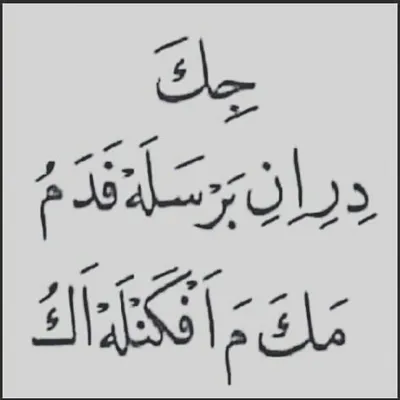 جِكَ
دِرِ اِنِ بَرْسَلَهْ فَدَ مُ
مَكَ مَ اَفْكَنْلَهْ اَكُ